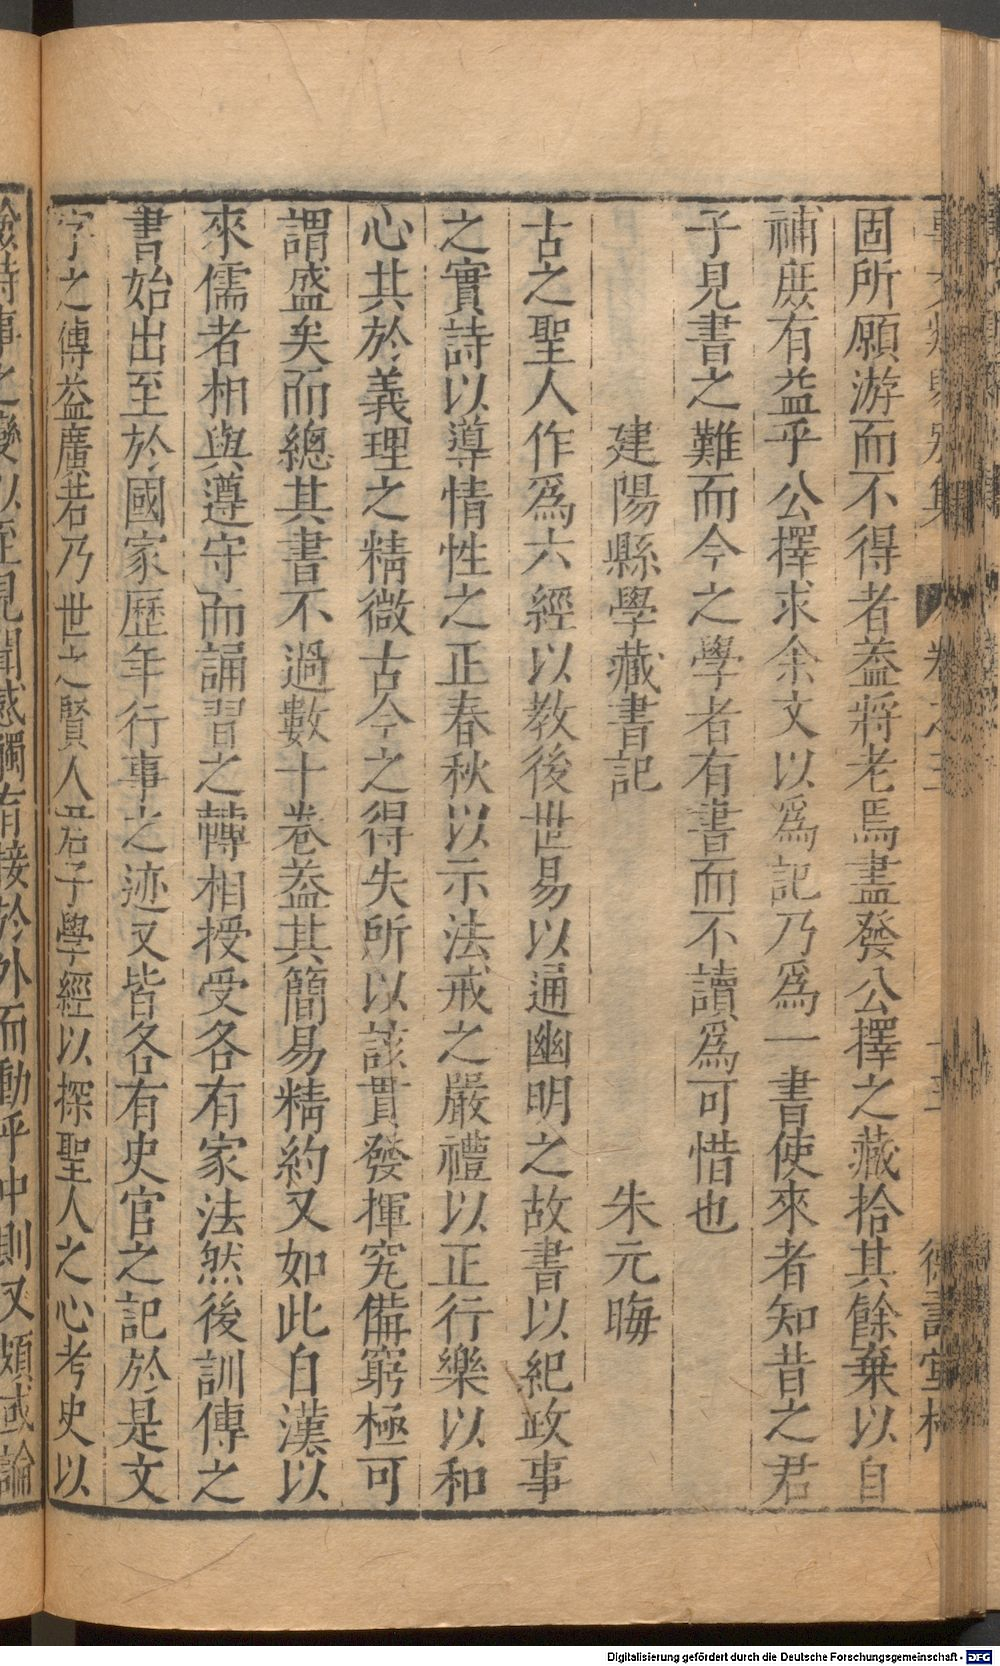 固所願游而不得者葢將老焉盡發公擇之藏拾其餘棄以自
補庻有益乎公擇求余文以爲記乃爲一書使來者知昔之君
子見書之難而今之學者有書而不讀爲可惜也
建陽縣學藏書記
朱元晦
古之聖人作爲六經以教後世易以通幽明之故書以紀政事
之實詩以導情性之正春秋以示法戒之嚴禮以正行樂以和
心其於義理之精微古今之得失所以該貫發揮究備窮極可
謂盛矣而總其書不過數十卷葢其簡易精約又如此自漢以
來儒者相與遵守而誦習之轉相授受各有家法然後訓傳之
書始出至於國家歷年行事之迹又皆各有史官之記於是文
字之傳益廣若乃世之賢人君子學經以探聖人之心考史以
驗時事之變以至見聞感觸有接於外而動乎中則又頗或論
Digitalisierung gefördert durch die Deutsche Forschungsgemeinschaft - DFG